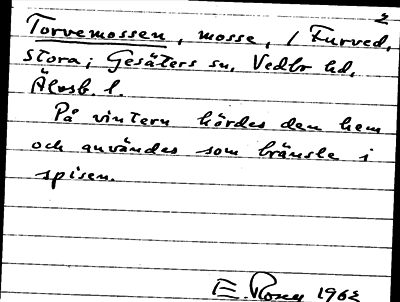 2
Torvemossen, mosse, / Furved,
stora; Gesäters sn, Vedbo hd,
Älvsb. l.
På vintern kördes den hem
och användes som bränsle i
spisen.
E. 1962